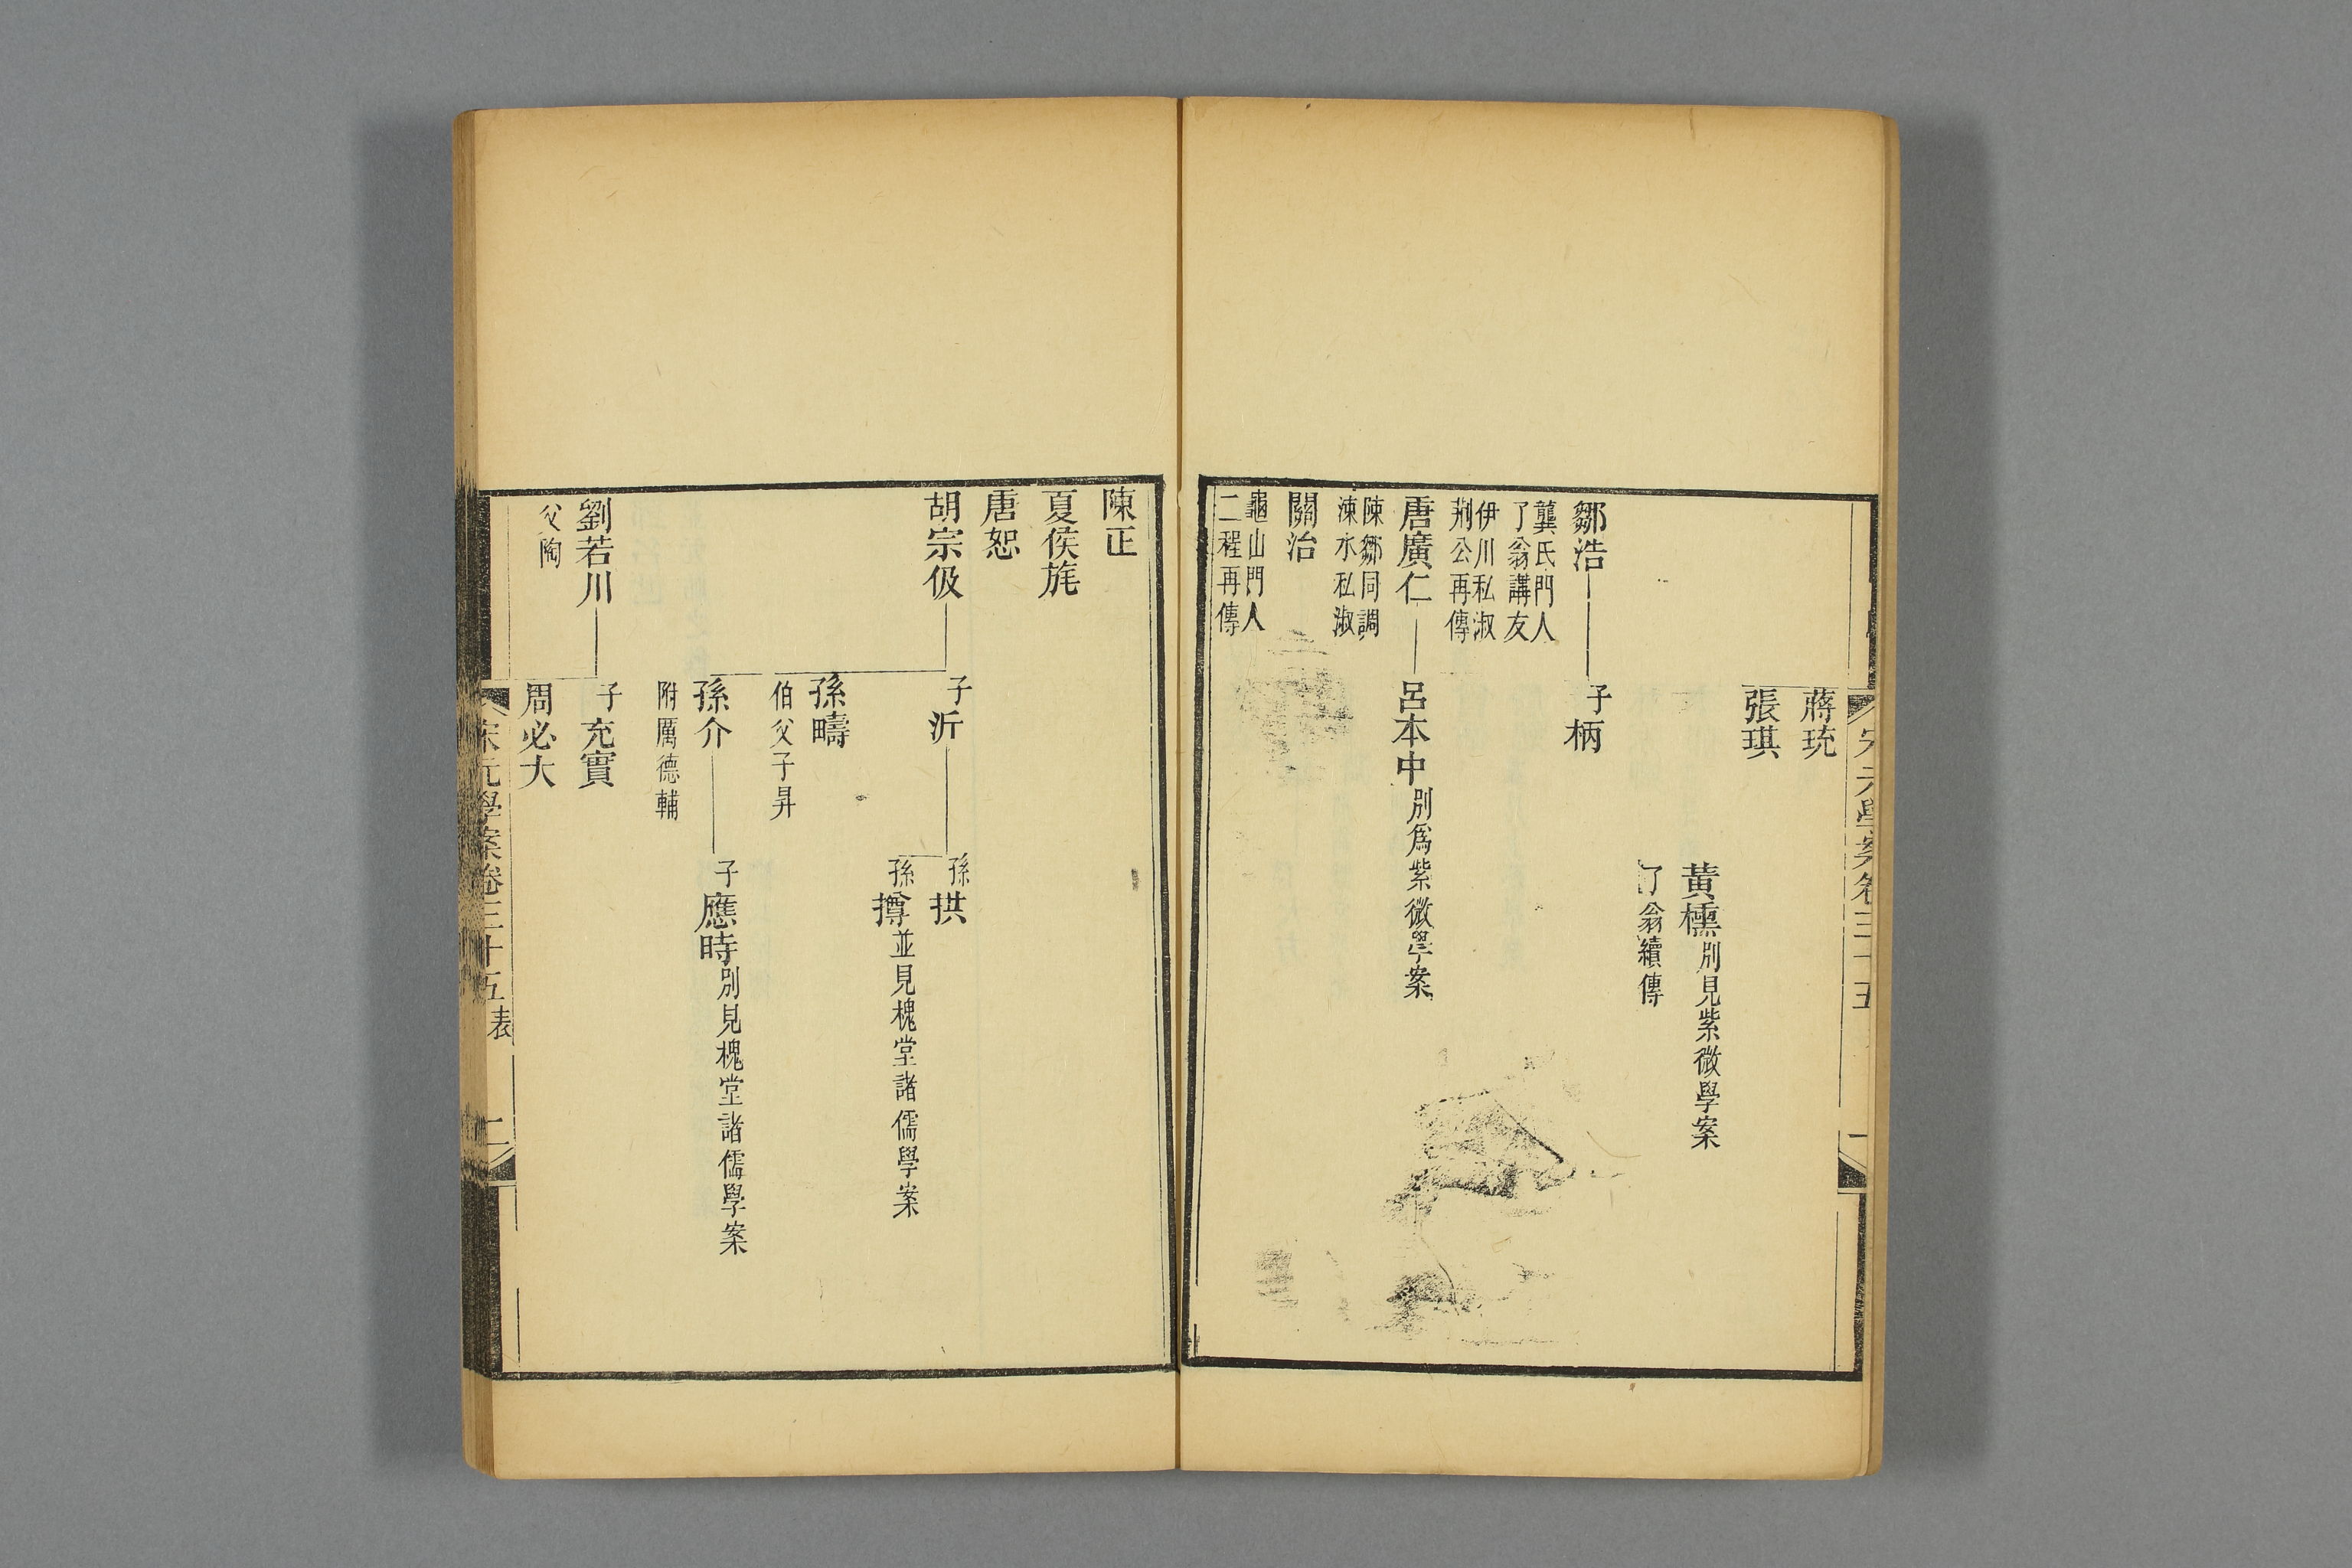 宋元學案卷三十五
一
蔣琉
張琪
黃櫄別見紫微學案
了翁續傳
鄒浩
子柄
龔氏門人
了翁講友
伊川私淑
荆公再傳
唐廣仁
呂本中別爲紫微學案
陳鄒同調
涑水私淑
關治
龜山門人
二程再傳
陳正
夏侯旄
唐恕
胡宗伋
子沂
孫拱
孫撙並見槐堂諸儒學案
孫疇
伯父子昇
孫介
子應時別見槐堂諸儒學案
附厲德輔
劉若川
子充實
父陶
周必大
宋元學案卷三十五表
二